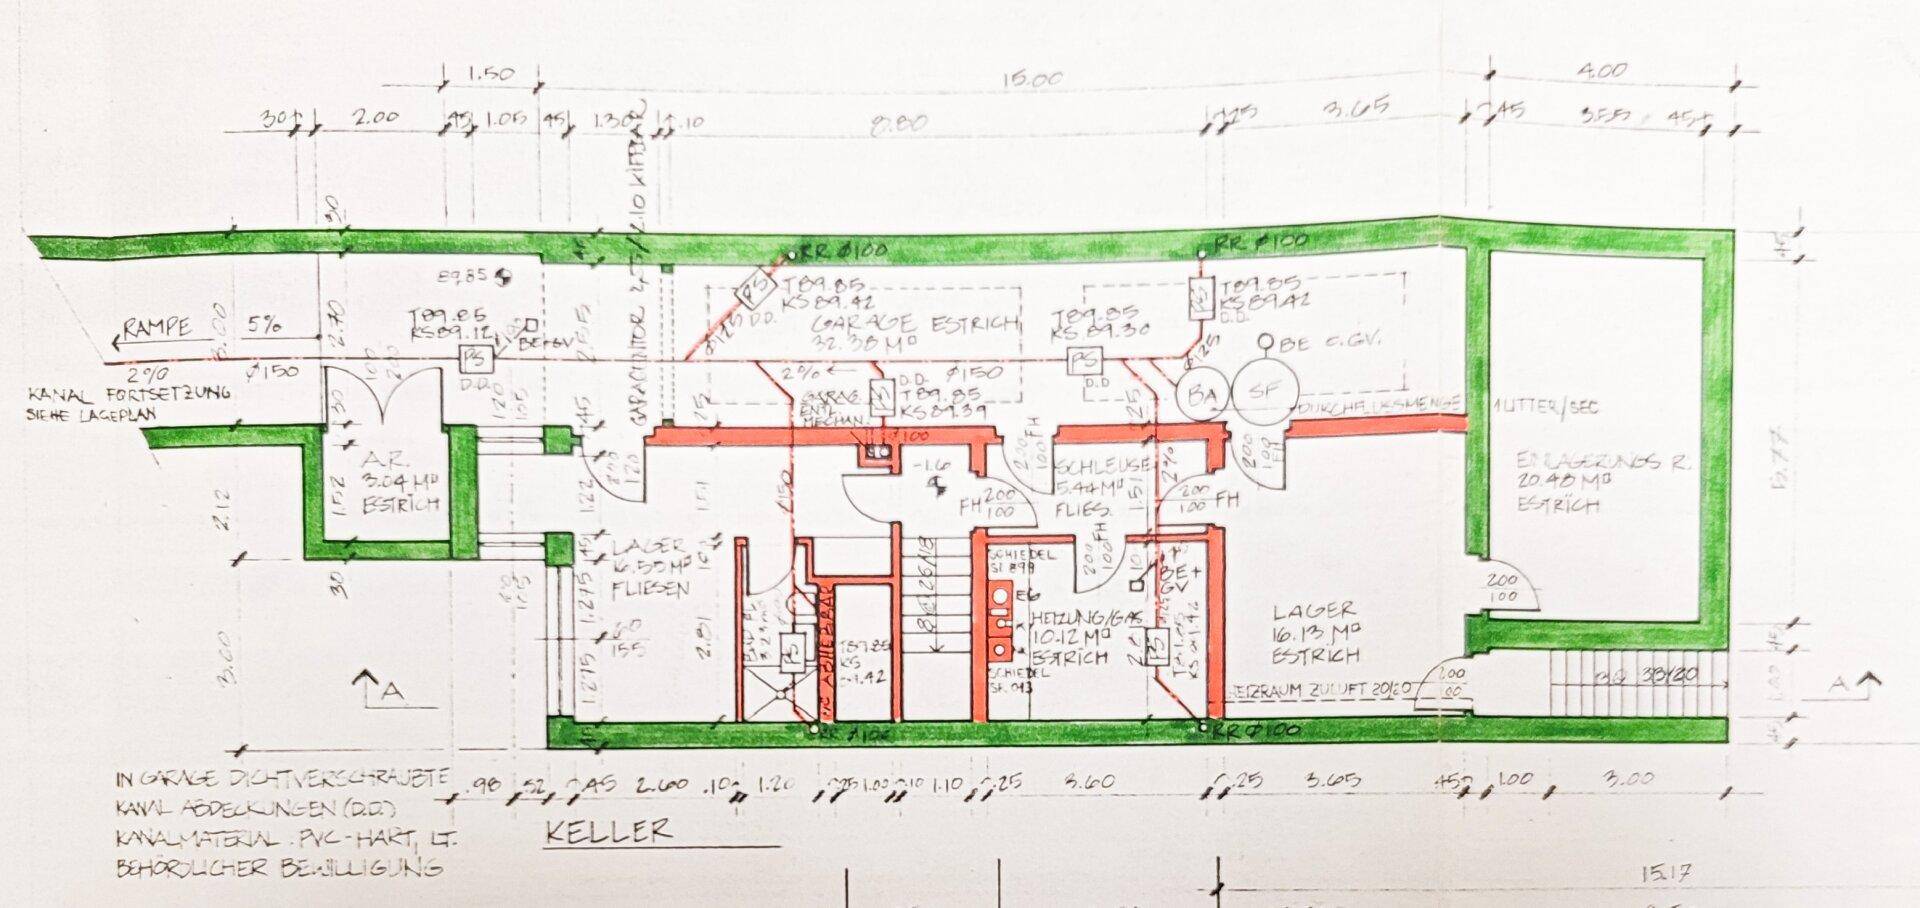 1.50
15.00
4.00
30
2.00
45
1.05
45
1.30
.10
8.80
.25
3.65
45
3.55
45
30
GARAGENTOR
RR Ø100
RR Ø100
89.85
T89.85
KS89.12
BE+GV
PS
D.D.
RAMPE
5%
2%
Ø150
KANAL FORTSETZUNG
SIEHE LAGEPLAN
3.00
2.70
PS
D.D.
Ø125
T89.85
KS89.42
GARAGE ESTRICH
32.38 M²
2%
Ø150
D.D.
T89.85
KS89.39
PS
GARAG.
ENTL.
MECHAN.
Ø100
T89.85
KS.89.30
PS
D.D
T89.85
KS89.42
D.D.
PS
Ø125
BE C.GV.
BA
SF
DURCHFLUSSMENGE 1 LITER/SEC
A.R.
3.04 M²
ESTRICH
1.52
2.12
30
LAGER
16.55 M²
FLIESEN
2.81
1.22
1.51
Ø150
-1.6
FH
200
100
200
100 FH
SCHLEUSE
5.44 M²
FLIES.
1.51
2%
200
100
FH
EINLAGERUNGS R.
20.48 M²
ESTRICH
5.77
SCHIEDEL
HEIZUNG/GAS
10.12 M²
ESTRICH
SCHIEDEL
BE+
GV
PS
PS
T89.85
KS
LAGER
16.13 M²
ESTRICH
200
100
200
100
HEIZRAUM ZULUFT 20/20
1.275
1.275
155
3.60
A
A
1.00
RR Ø100
RR Ø100
IN GARAGE DICHTVERSCHRAUBTE
KANAL ABDECKUNGEN (D.D.)
KANALMATERIAL PVC-HART, LT.
BEHÖRDLICHER BEWILLIGUNG
.98
52
45
2.60
.10
1.20
.25
1.00
.10
1.10
.25
3.60
.25
3.65
45
1.00
3.00
KELLER
15.17